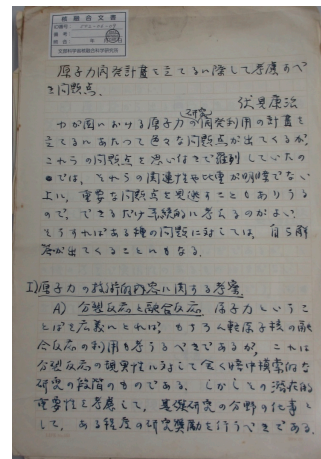 核融合文書
原子力開発計画を立てるに際して考慮すべ
き問題点.
伏見康治
わが国における原子力の研究開発利用の計画を
立てるにあたって色々な問題点が出てくるが,
これらの問題点を思い付きで羅列していたの
では、それらの関連性や比重が明瞭でない
上に、重要な問題点を見逃すこともありうる
ので、できるだけ系統的に考えるのがよい.
そうすればある種の問題に対しては、自ら解
答が出てくることにもなる.
I) 原子力の技術的内容に関する考察
A) 分裂反応と融合反応. 原子力というこ
とばを広義にとれば、もちろん軽原子核の融
合反応の利用も考うるべきであるが、これは
分裂反応の現実性に対して全く暗中模索的な
研究の段階のものである. しかしその潜在的
重要性を考慮して、基礎研究の分野の仕事と
して、ある程度の研究奨励を行うべきである.